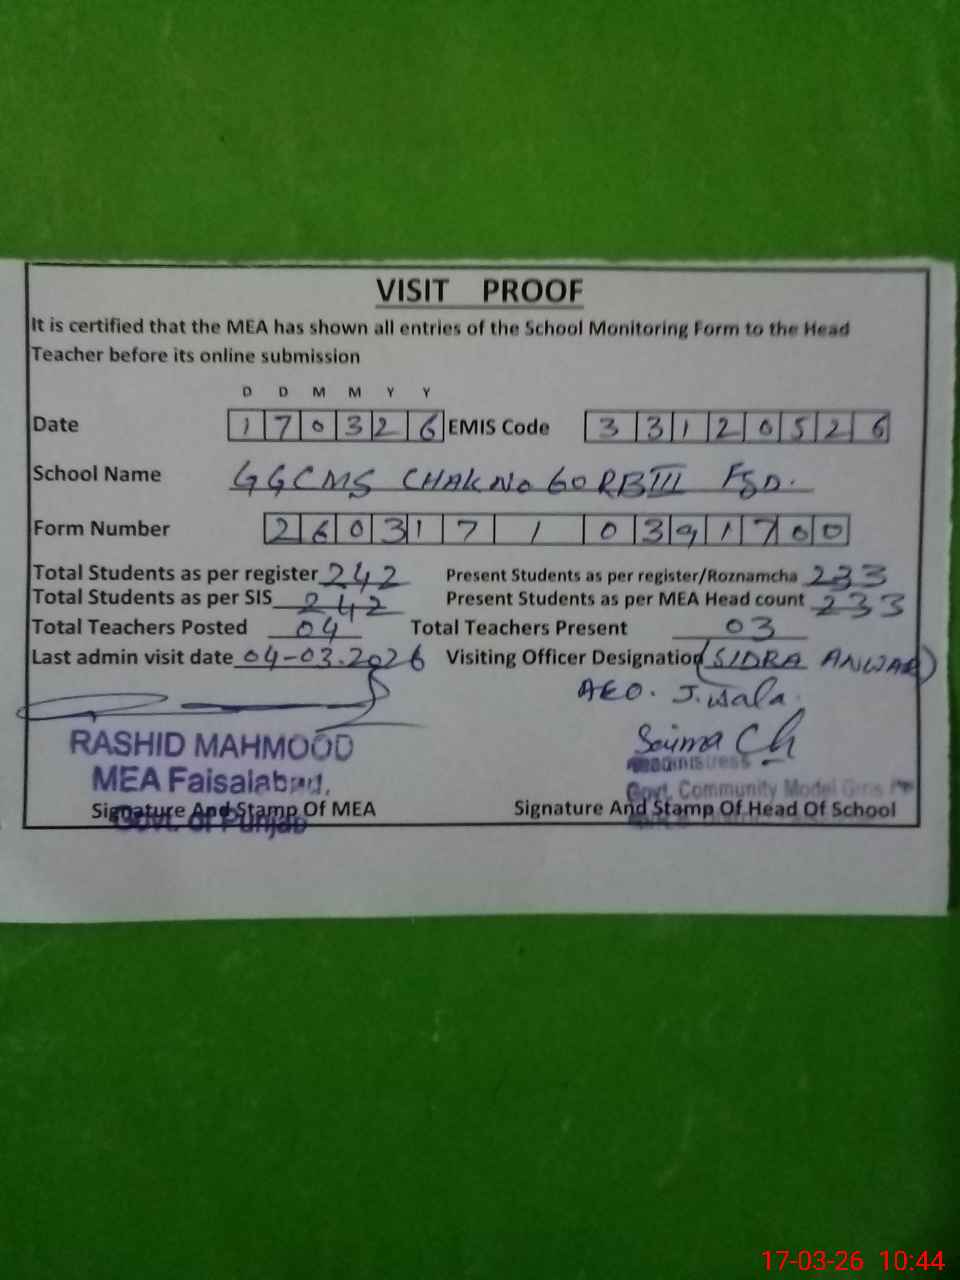 VISIT PROOF
It is certified that the MEA has shown all entries of the School Monitoring Form to the Head
Teacher before its online submission
D D M M Y Y
Date 1 7 0 3 2 6 EMIS Code 3 3 1 2 0 5 2 6
School Name GGCMS CHAK No 60 RB III FSD.
Form Number 2 6 0 3 1 7 1 0 3 9 1 7 0 0
Total Students as per register 242 Present Students as per register/Roznamcha 233
Total Students as per SIS 242 Present Students as per MEA Head count 233
Total Teachers Posted 04 Total Teachers Present 03
Last admin visit date 04-03-2026 Visiting Officer Designation (SIDRA ANWAR)
AEO. J.wala.
RASHID MAHMOOD Saima Ch
MEA Faisalabad. Headmistress
Govt. Community Model Girls
Signature And Stamp Of MEA Signature And Stamp Of Head Of School
Govt. of Punjab
17-03-26 10:44